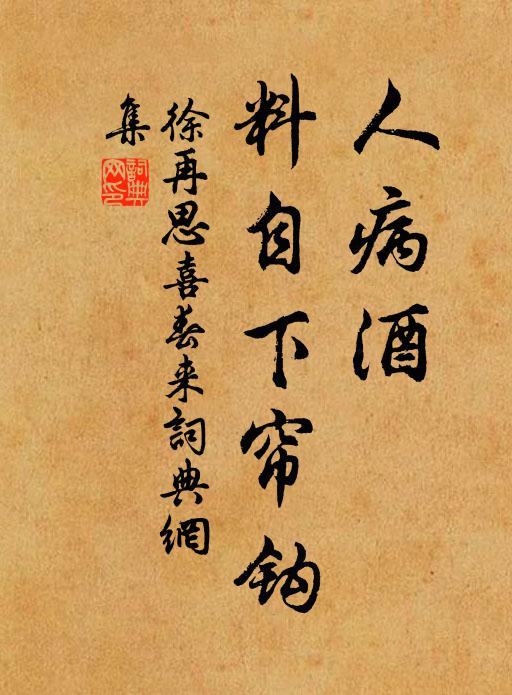 人病酒
料自下帘钩
徐再思喜春来詞典網
集
詞典
网印